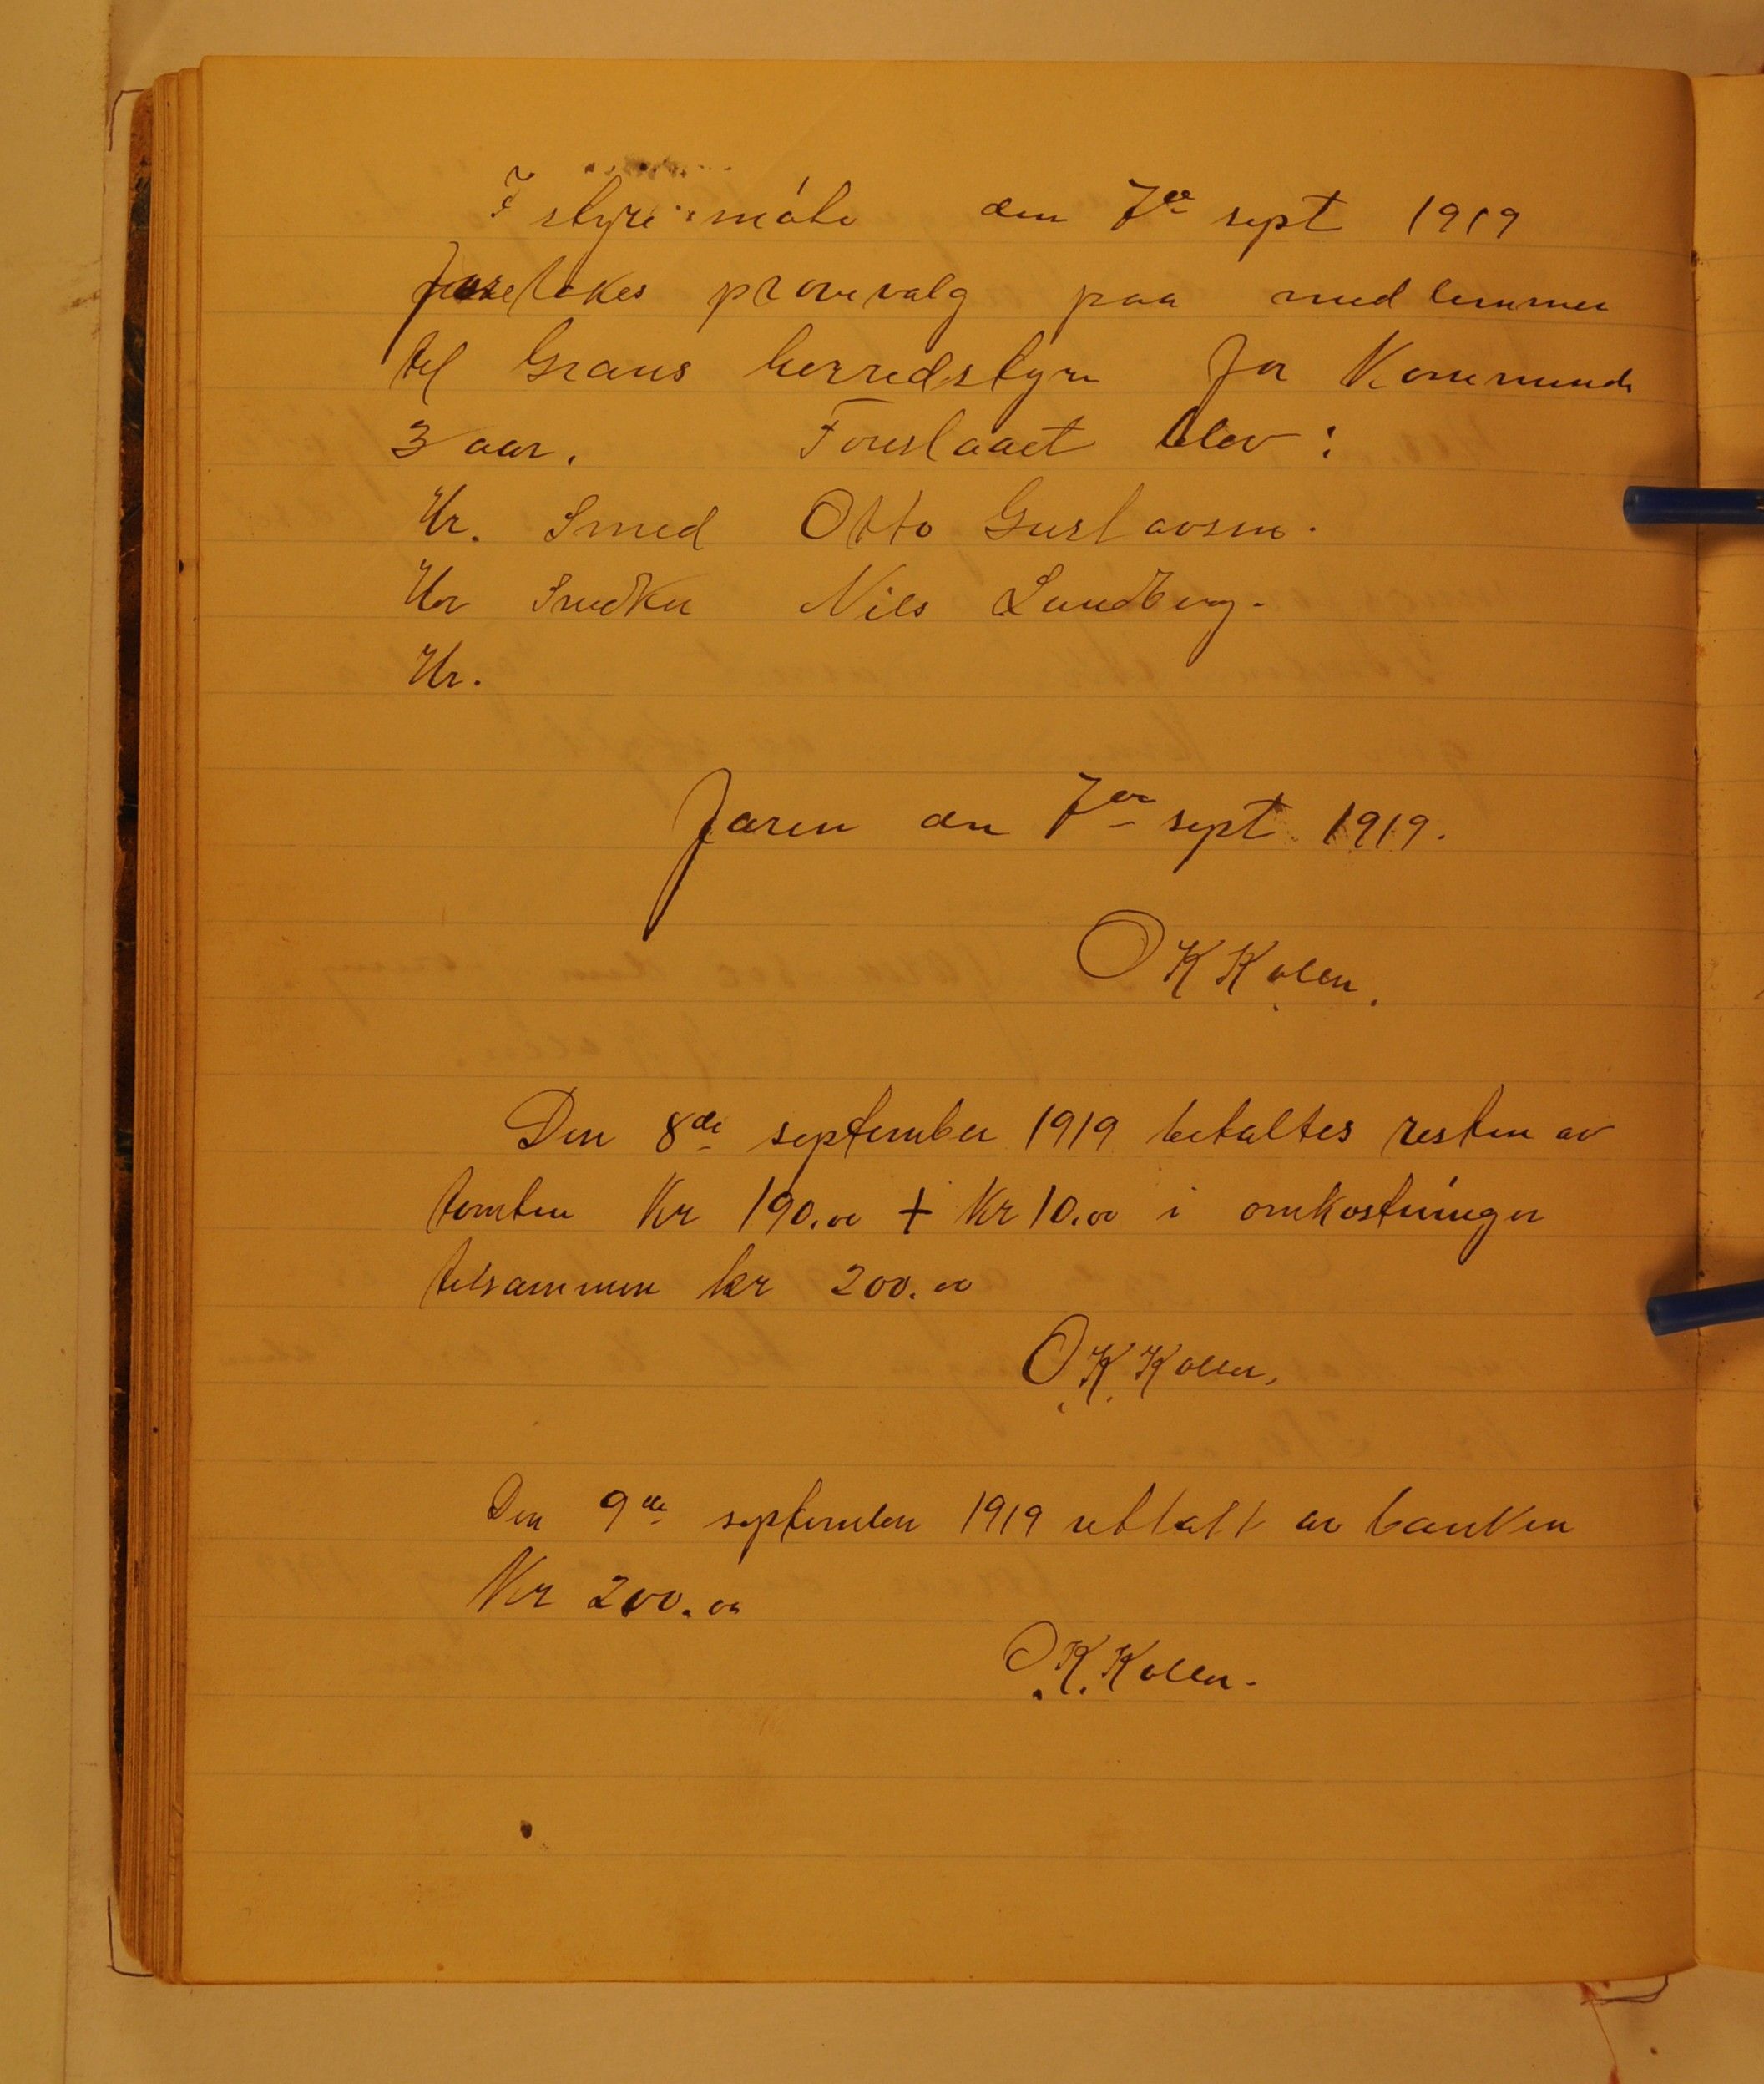 I styremöte den 7de sept 1919
foretokes prøvevalg paa medlemmer
til Grans herredstyre for Kommende
3 aar. Foreslaaet blev:
Hr. Smed Otto Gustavsen.
Hr Snedker Nils Lundberg.
Hr.
Jaren den 7de sept. 1919.
O K Kollen.
Den 8de september 1919 betaltes resten av
tomten Kr 190.00 + Kr 10.00 i omkostninger
tilsammen kr 200.00
O K Kollen.
Den 9de september 1919 uttatt av banken
Kr 200.00
O.K. Kollen.